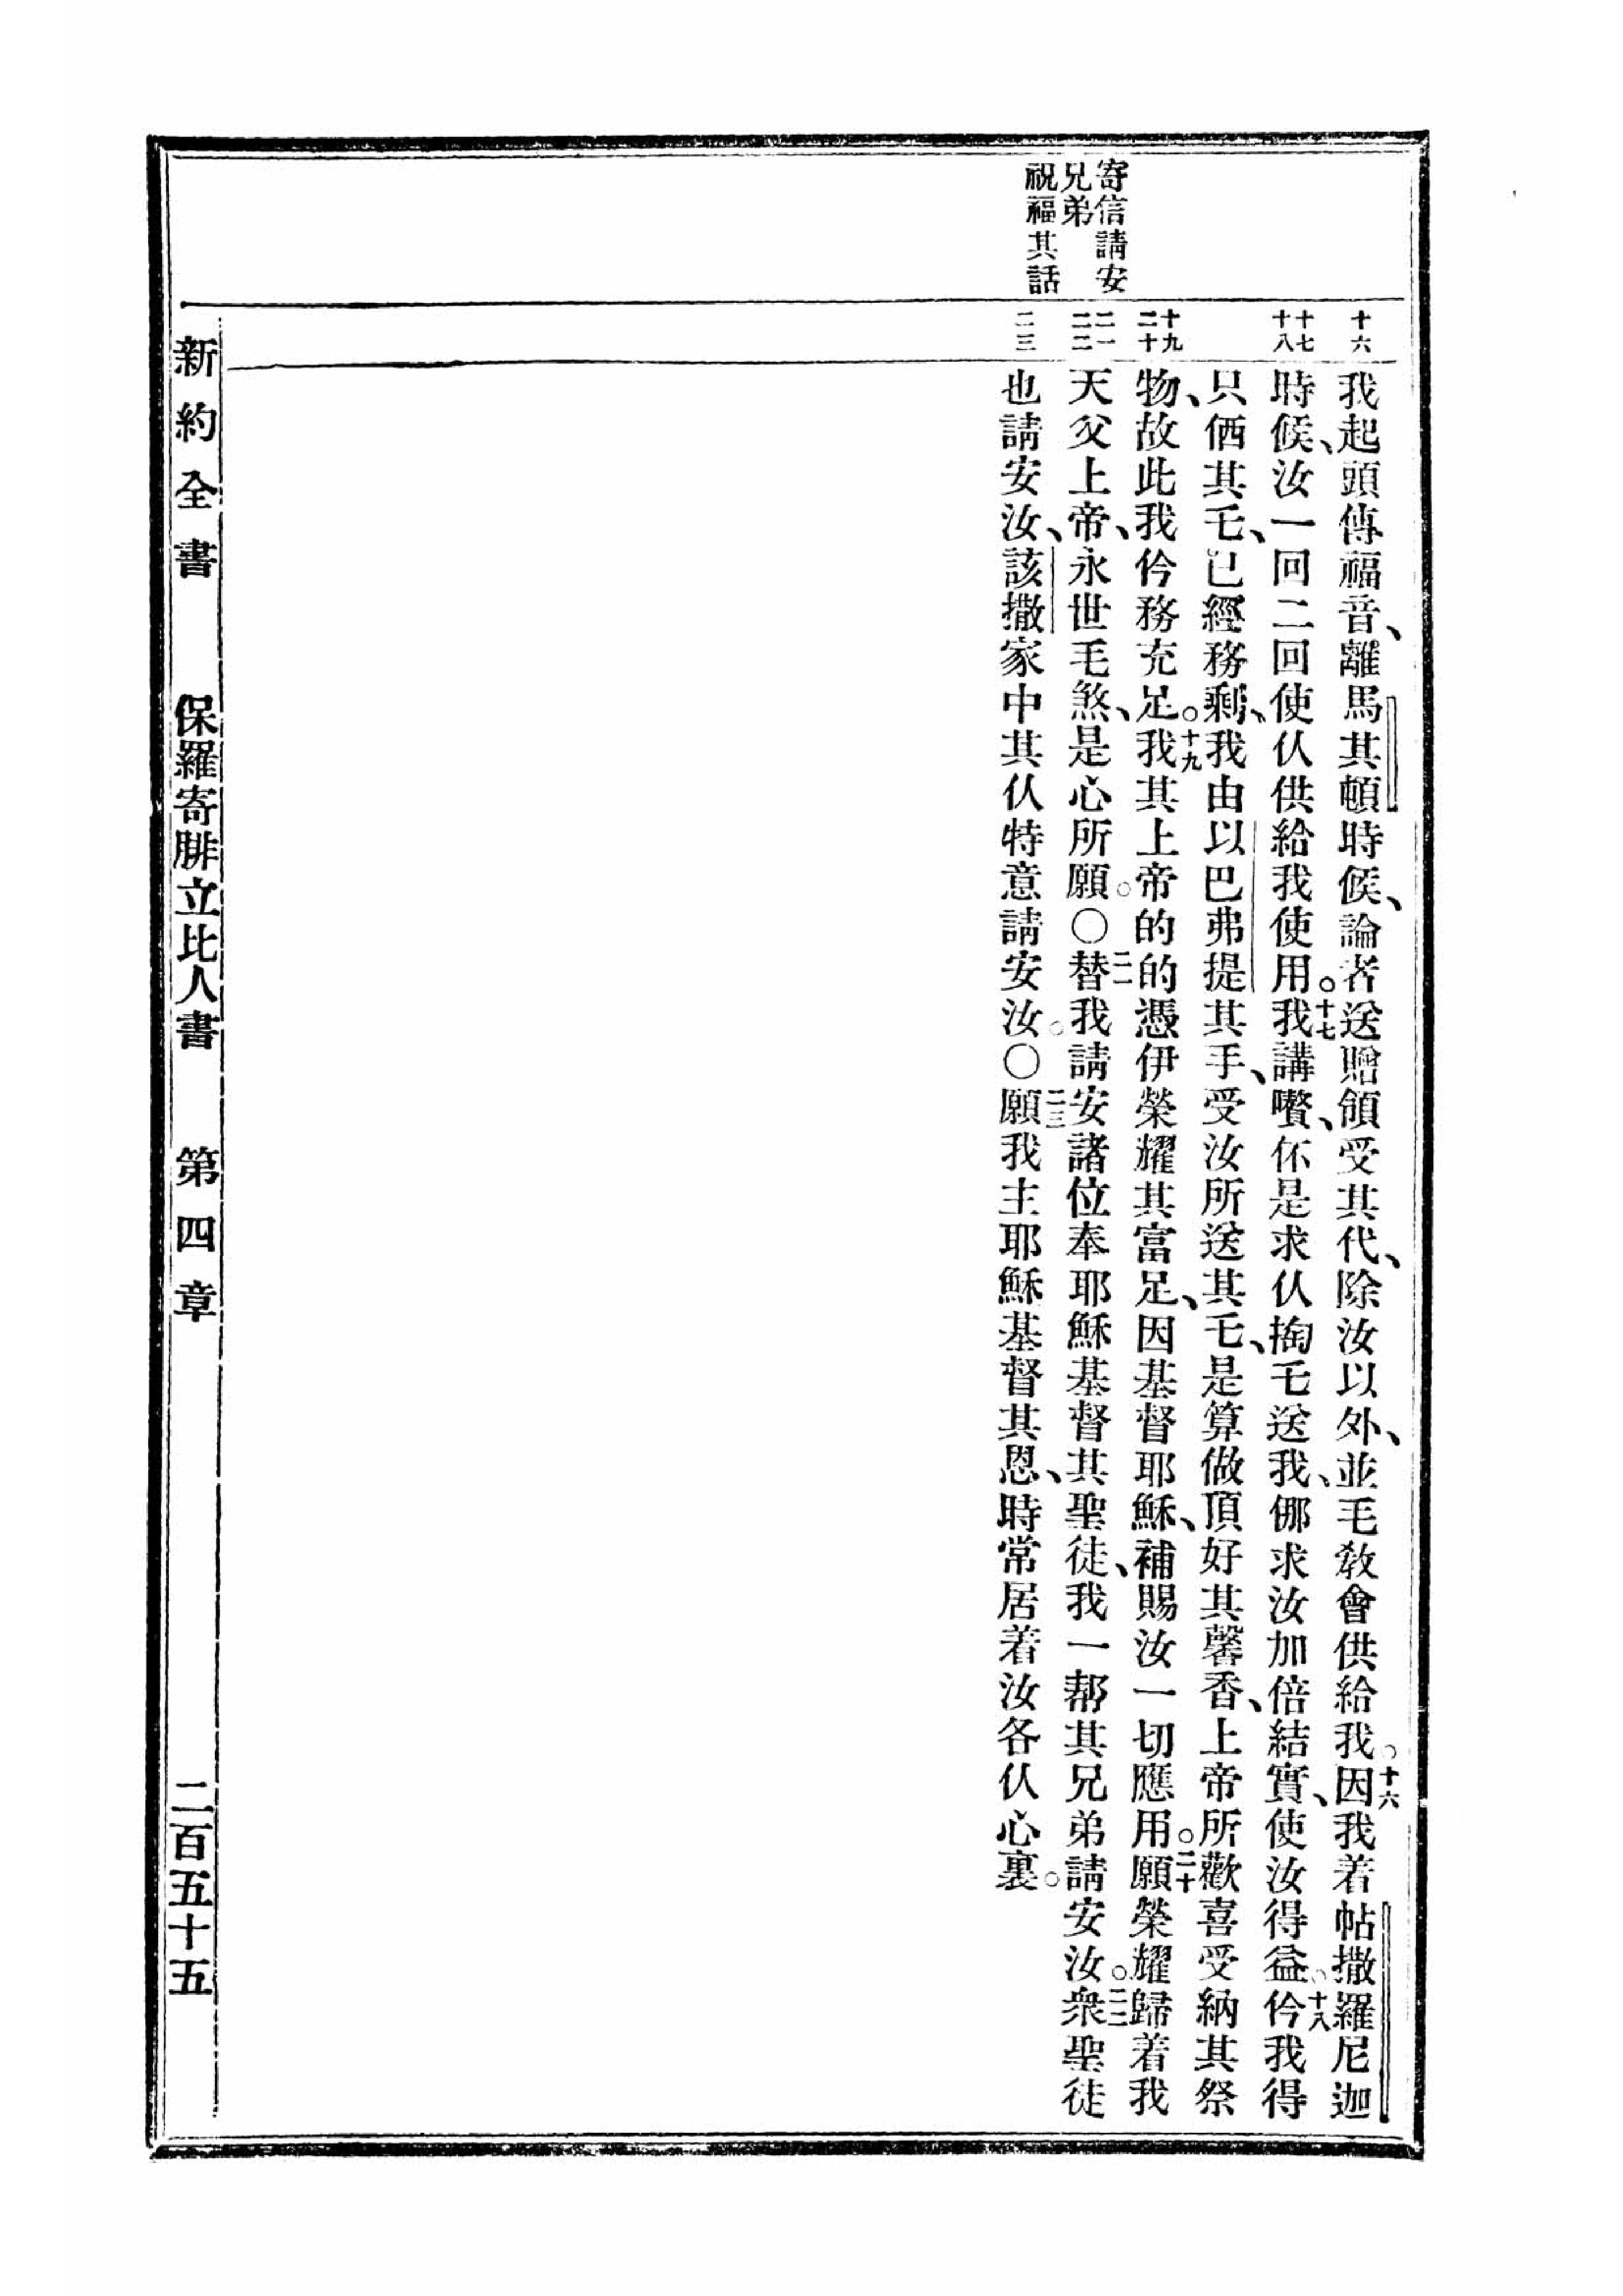 寄信請安
兄弟
祝福其話
十六
十七
十八
十九
二十
二一
二二
二三
我起頭傳福音、離馬其頓時候、論者送贈領受其代、除汝以外、並毛教會供給我。十六因我着帖撒羅尼迦
時候、汝一回二回使仈供給我使用。十七我講囋、伓是求仈掏乇送我、㑚求汝加倍結實、使汝得益。十八伶我得
只伷其乇、已經務剩、我由以巴弗提其手、受汝所送其乇、是算做頂好其馨香、上帝所歡喜受納其祭
物、故此我伶務充足。十九我其上帝的的憑伊榮耀其富足、因基督耶穌、補賜汝一切應用。二十願榮耀歸着我
天父上帝、永世毛煞、是心所願。〇二一替我請安諸位奉耶穌基督其聖徒、我一幫其兄弟請安汝。二二衆聖徒
也請安汝、該撒家中其仈特意請安汝。〇二三願我主耶穌基督其恩、時常居着汝各仈心裏。
新約全書　保羅寄腓立比人書　第四章　二百五十五